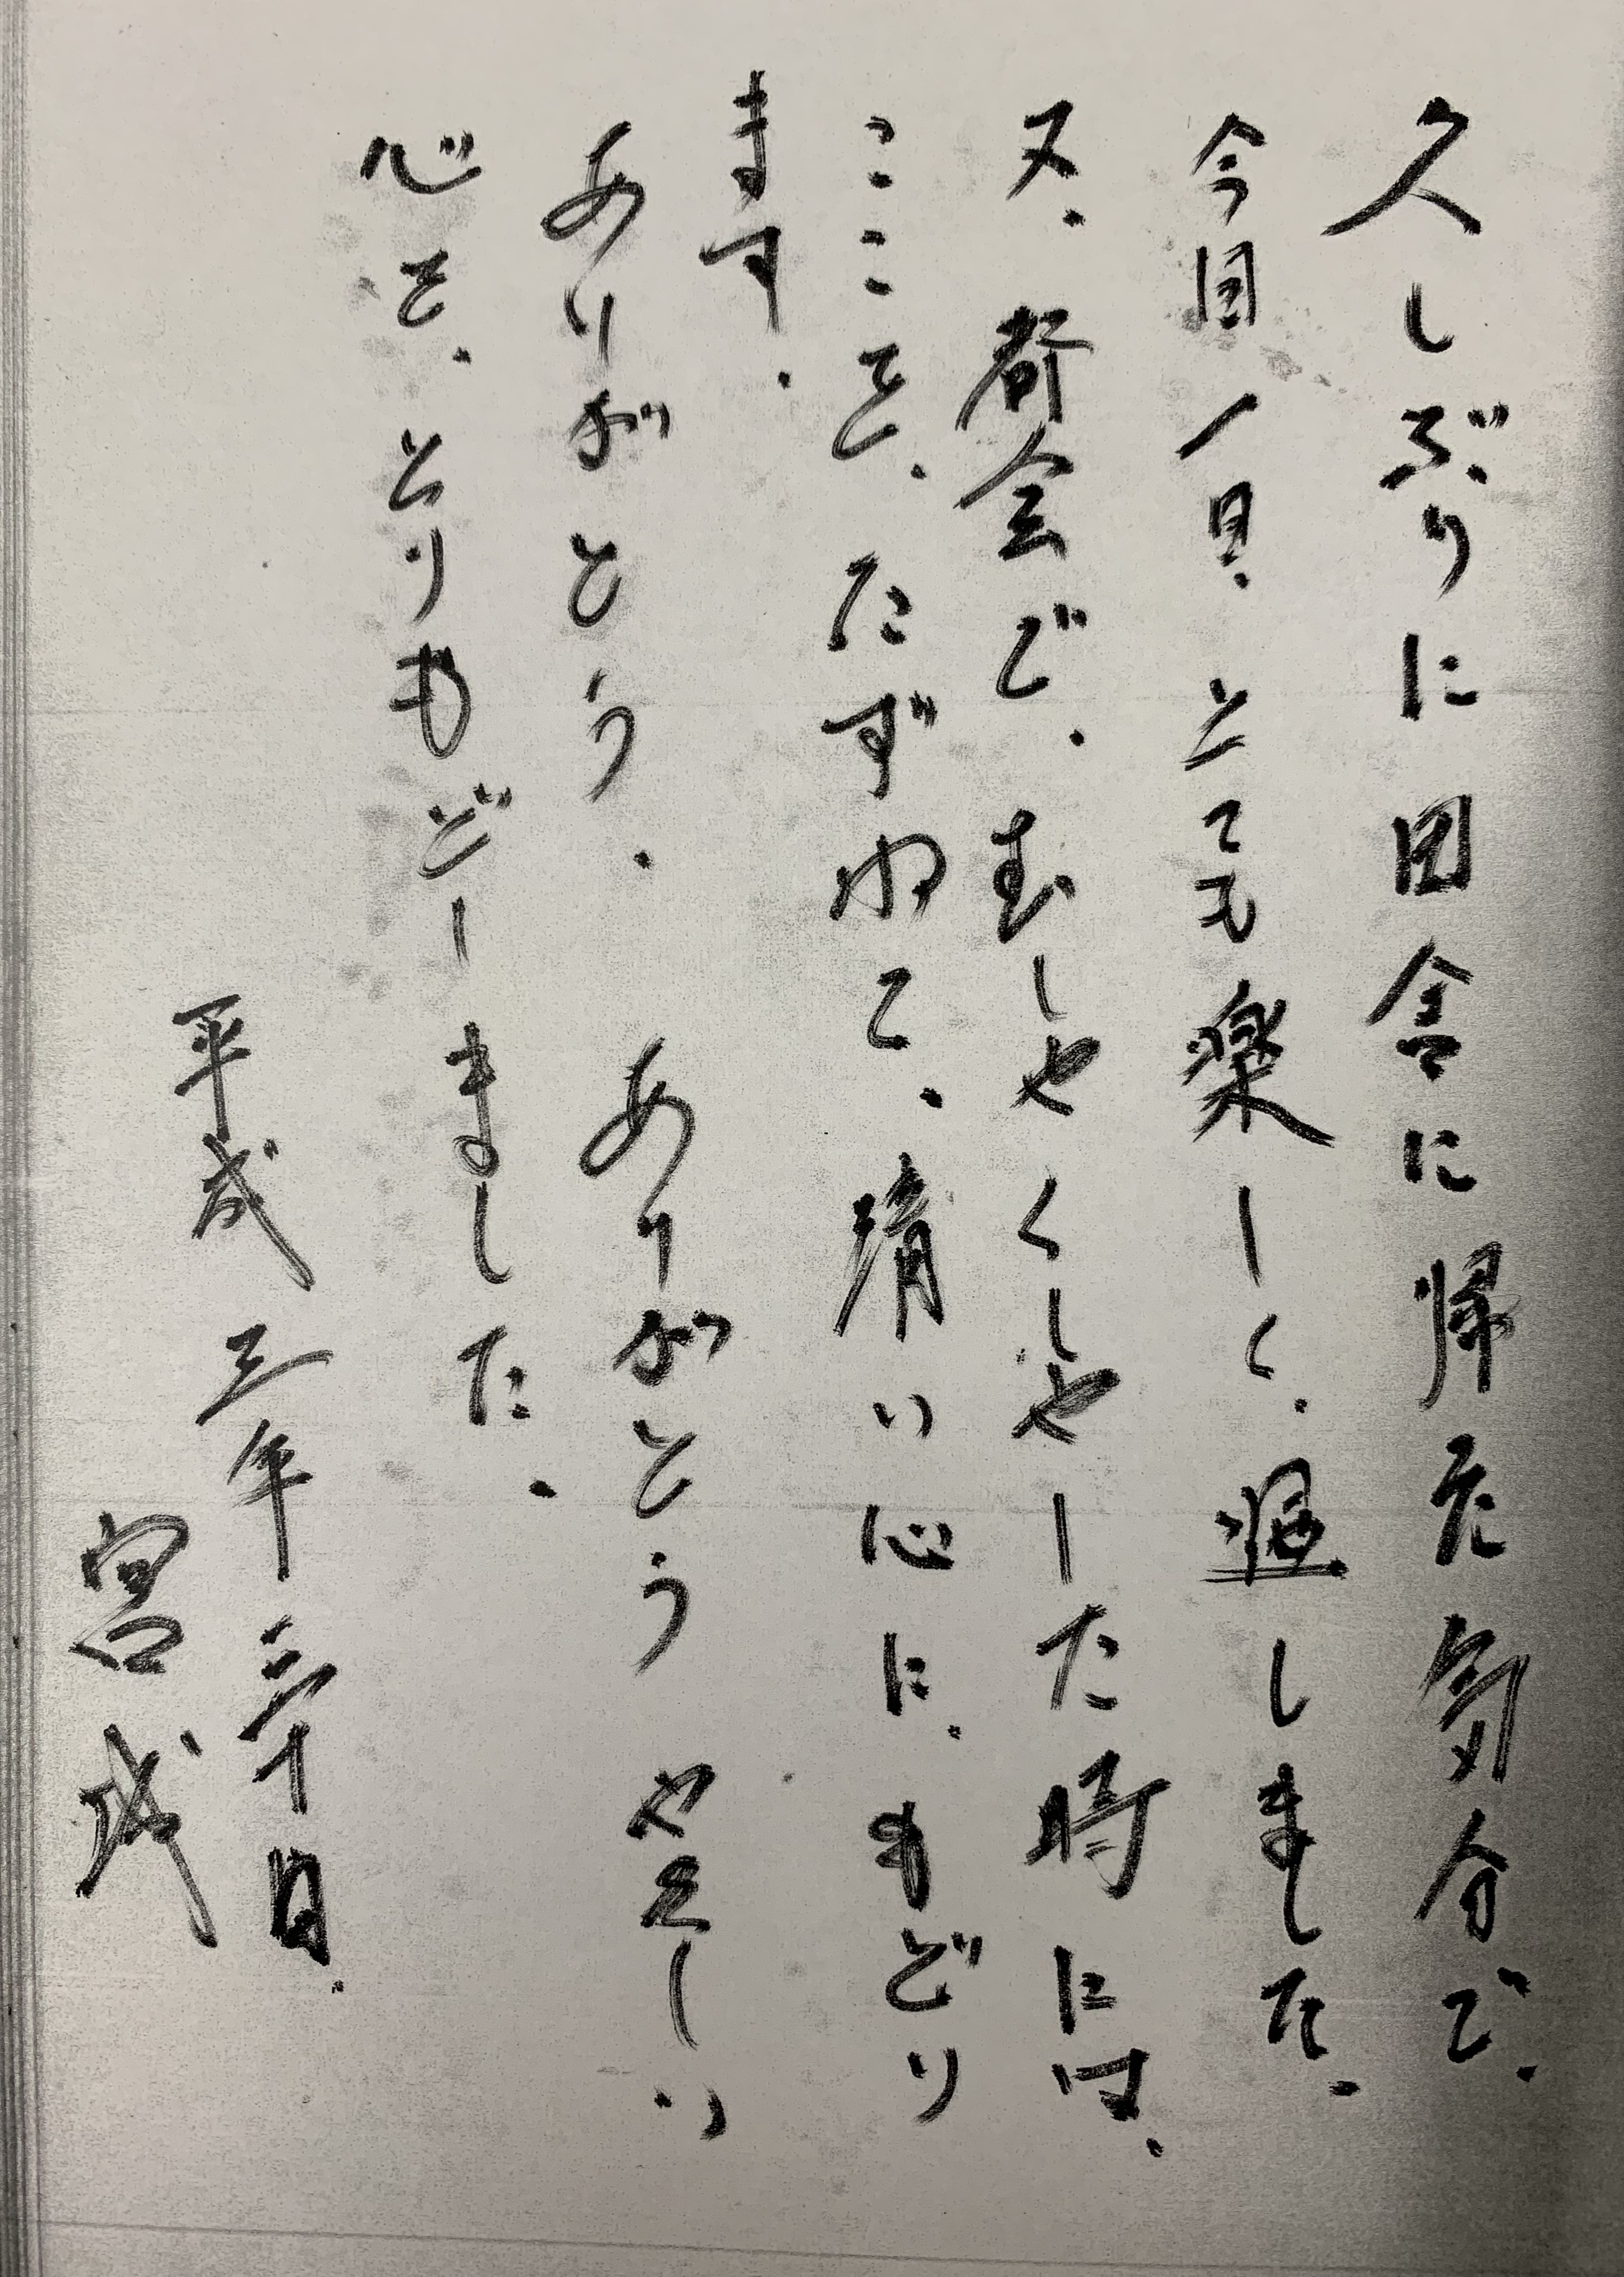 久しぶりに田舎に帰た気分で、
今日一日、とても楽しく、過しました。
又、都会で、むしゃくしゃした時には、
ここを、たずねて、清い心に、もどり
ます。
ありがとう、ありがとう やさしい
心を、とりもどしました。
平成三年 日、
宮城